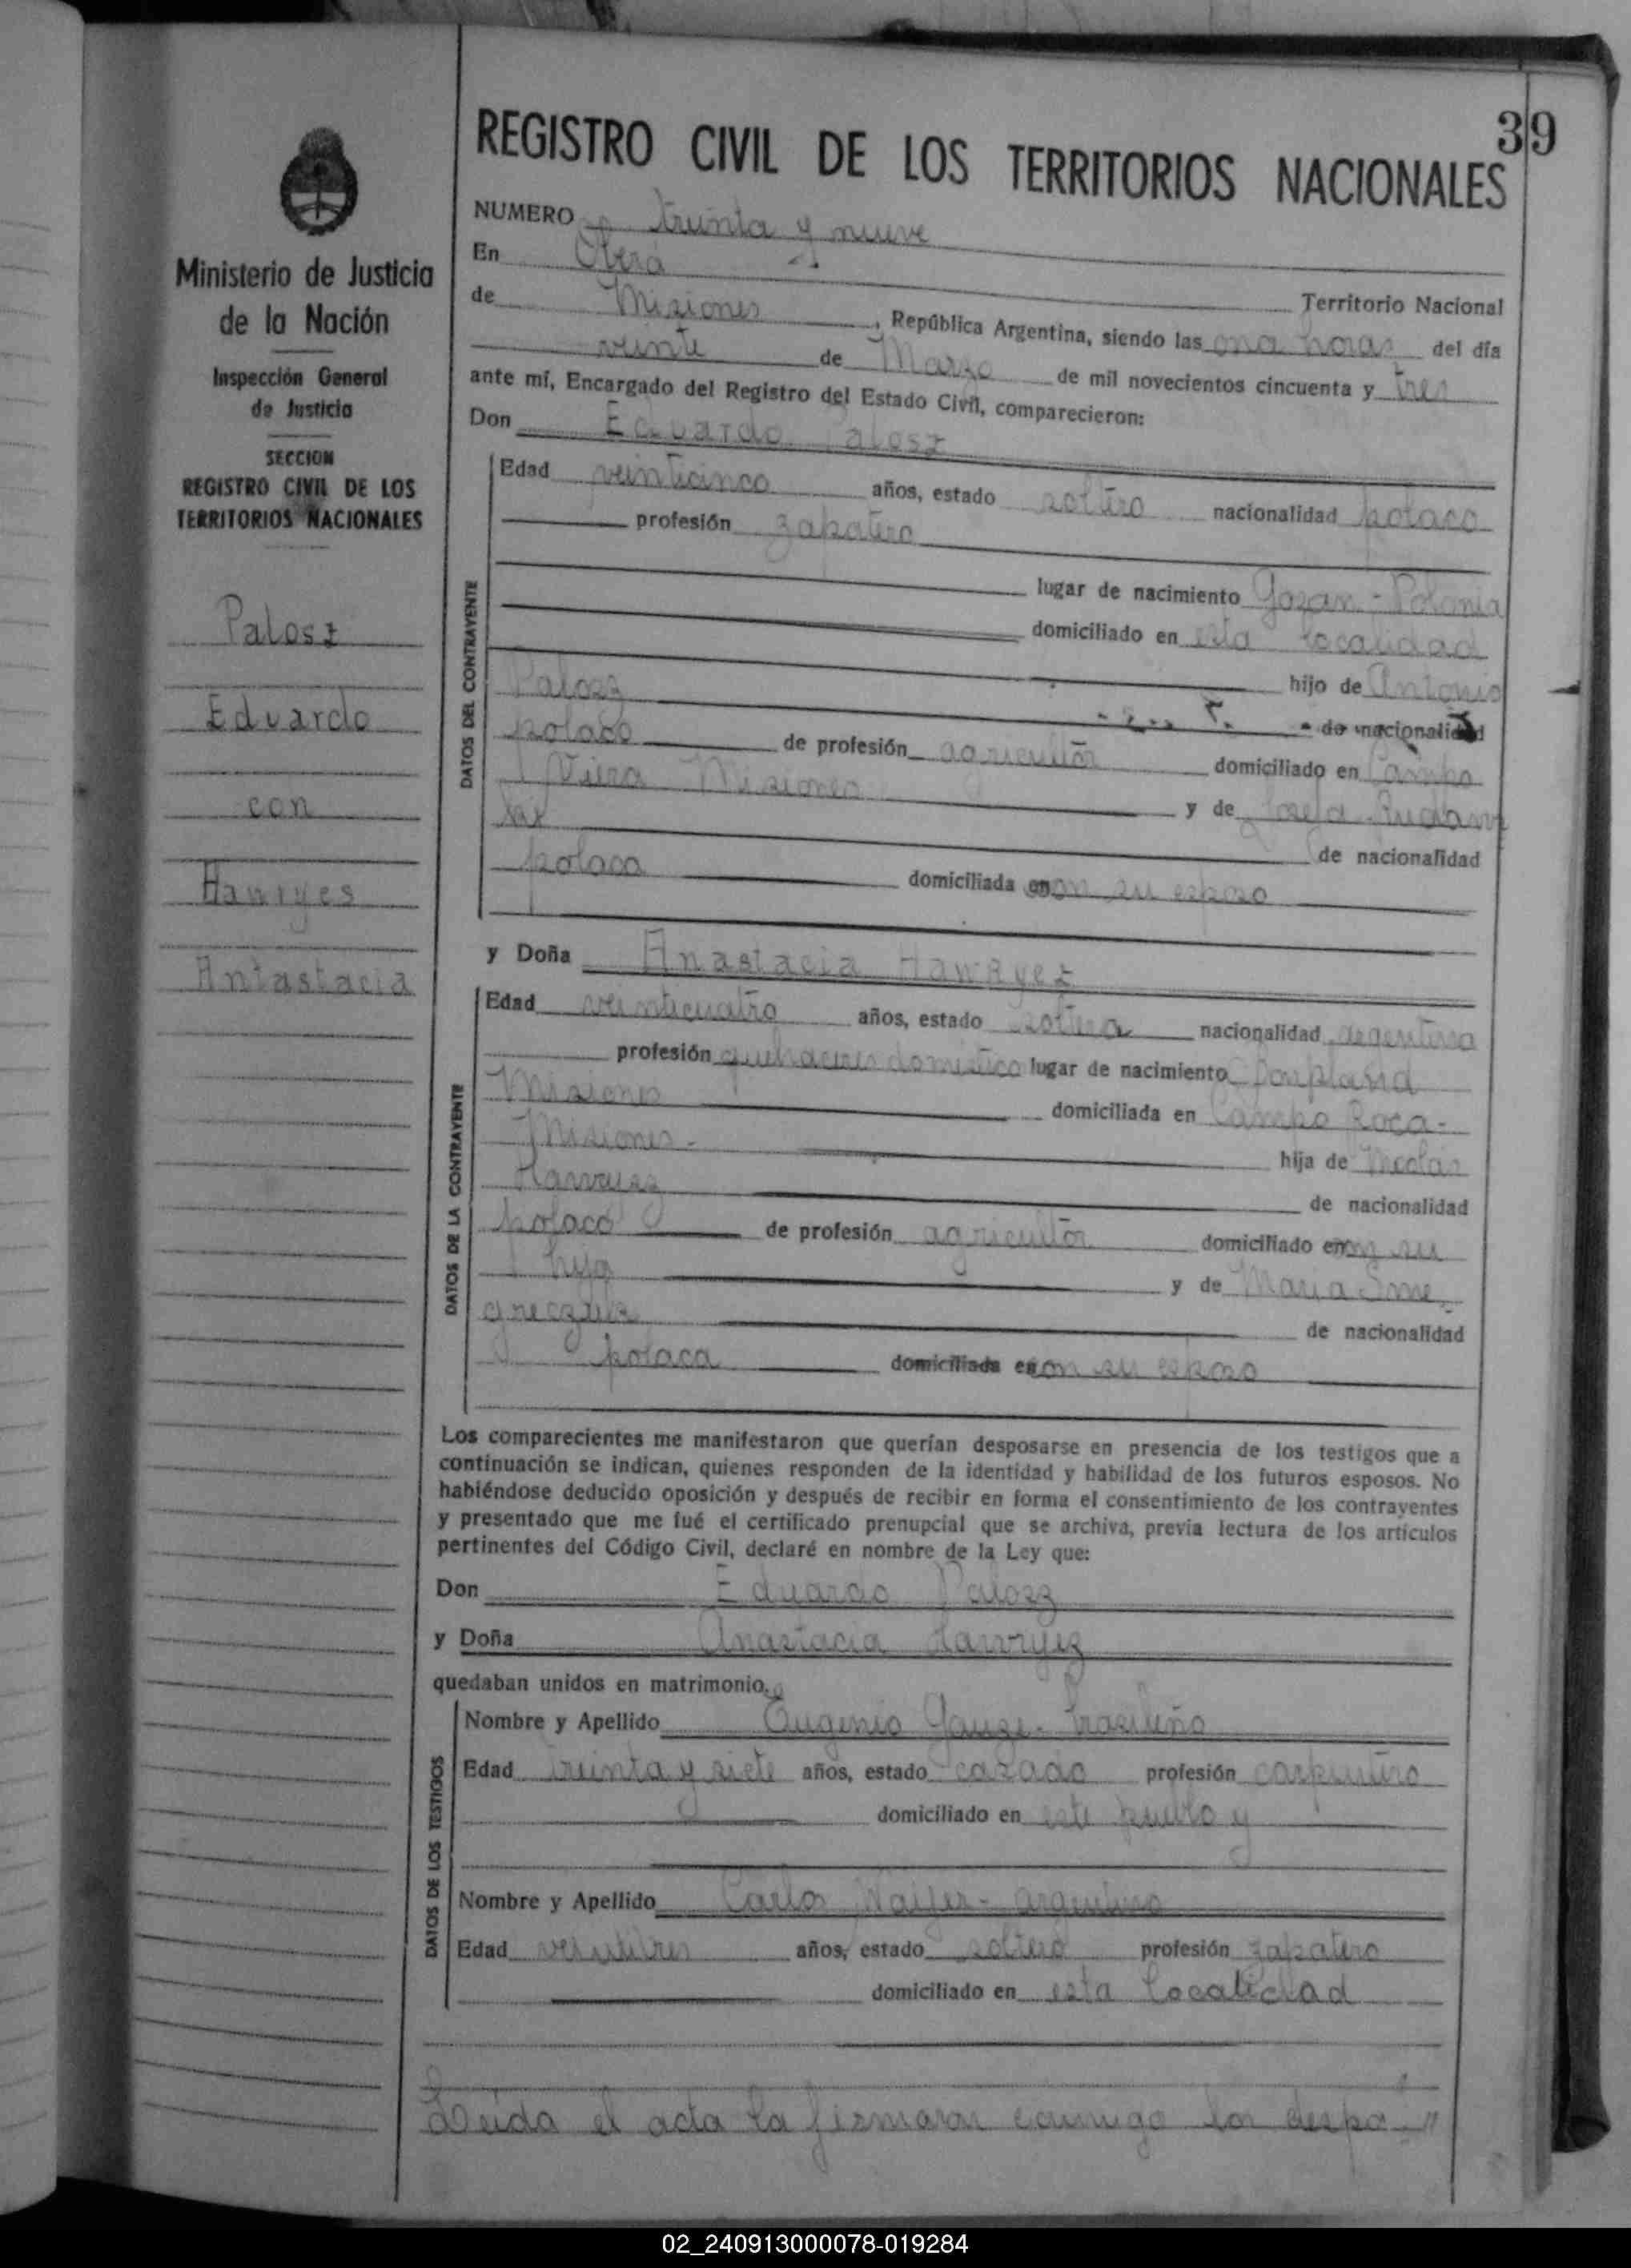 39
REGISTRO CIVIL DE LOS TERRITORIOS NACIONALES
Ministerio de Justicia
de la Nación
Inspección General
de Justicia
SECCION
REGISTRO CIVIL DE LOS
TERRITORIOS NACIONALES
Palosz
Eduardo
con
Hawryes
Antastacia
NUMERO treinta y nueve
En Oberá
Territorio Nacional
de Misiones, República Argentina, siendo las horas del día
veinte de Marzo de mil novecientos cincuenta y tres
ante mí, Encargado del Registro del Estado Civil, comparecieron:
Don Eduardo Palosz
DATOS DEL CONTRAYENTE
Edad veinticinco años, estado soltero nacionalidad polaco
profesión zapatero
lugar de nacimiento - Polonia
domiciliado en esta localidad
hijo de Antonio
Palosz de nacionalidad
polaco de profesión agricultor domiciliado en Campo
Viera Misiones y de Josefa
de nacionalidad
polaca domiciliada con su esposo
y Doña Anastacia Hawryez
DATOS DE LA CONTRAYENTE
Edad veinticuatro años, estado soltera nacionalidad argentina
profesión quehaceres domestico lugar de nacimiento Bonpland
Misiones domiciliada en Campo Roca-
Misiones- hija de Nicolas
Hawryez de nacionalidad
polaco de profesión agricultor domiciliado en su
hija y de Maria
de nacionalidad
polaca domiciliada con su esposo
Los comparecientes me manifestaron que querían desposarse en presencia de los testigos que a
continuación se indican, quienes responden de la identidad y habilidad de los futuros esposos. No
habiéndose deducido oposición y después de recibir en forma el consentimiento de los contrayentes
y presentado que me fué el certificado prenupcial que se archiva, previa lectura de los artículos
pertinentes del Código Civil, declaré en nombre de la Ley que:
Don Eduardo Palosz
y Doña Anastacia Hawryez
quedaban unidos en matrimonio.
DATOS DE LOS TESTIGOS
Nombre y Apellido Eugenio - brasileño
Edad treinta y siete años, estado casado profesión carpintero
domiciliado en este pueblo y
Nombre y Apellido Carlos - argentino
Edad veintitres años, estado soltero profesión zapatero
domiciliado en esta localidad
Leida el acta la firmaron conmigo los despo-"
02_240913000078-019284